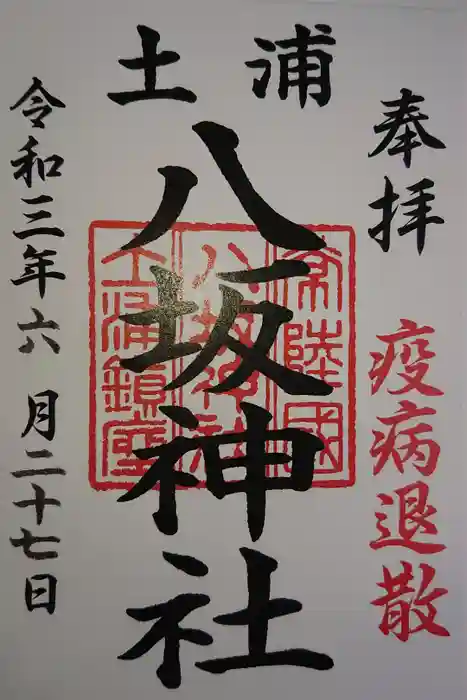 奉拝
疫病退散
土浦
八坂神社
常陸國
八坂神社
土浦鎮座
令和三年六月二十七日